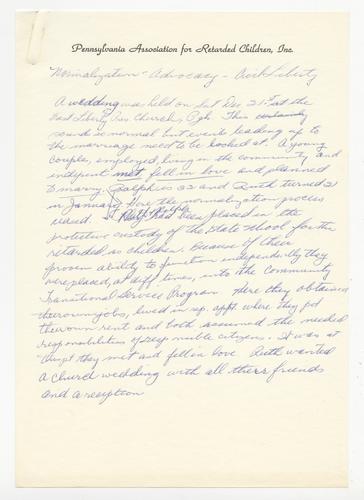 Pennsylvania Association for Retarded Children, Inc.
Normalization - Advocacy - Civil Liberty
A wedding was held on Sat Dec 21st at the
East Liberty Pres Church, Pgh. This certainly
sounds normal but events leading up to
the marriage need to be looked at. A young
couple, employed, living in the community and
indepent met, fell in love and planned
to marry. Ralph is 22 and Ruth turned 21
in January. Here the normalization process
ceased. Ruth & Ralph had been placed in the
protective custody of the State School for the
retarded as children. Because of their
proven ability to function independently they
were placed, at diff times, into the Community
Transitional Services Program. Here they obtained
their own jobs, lived in sep. appt. where they pd
their own rent and both assumed the needed
responsibilities of responsible citizens. It was at
they met and fell in love. Ruth wanted
a church wedding with all their friends
and a reception